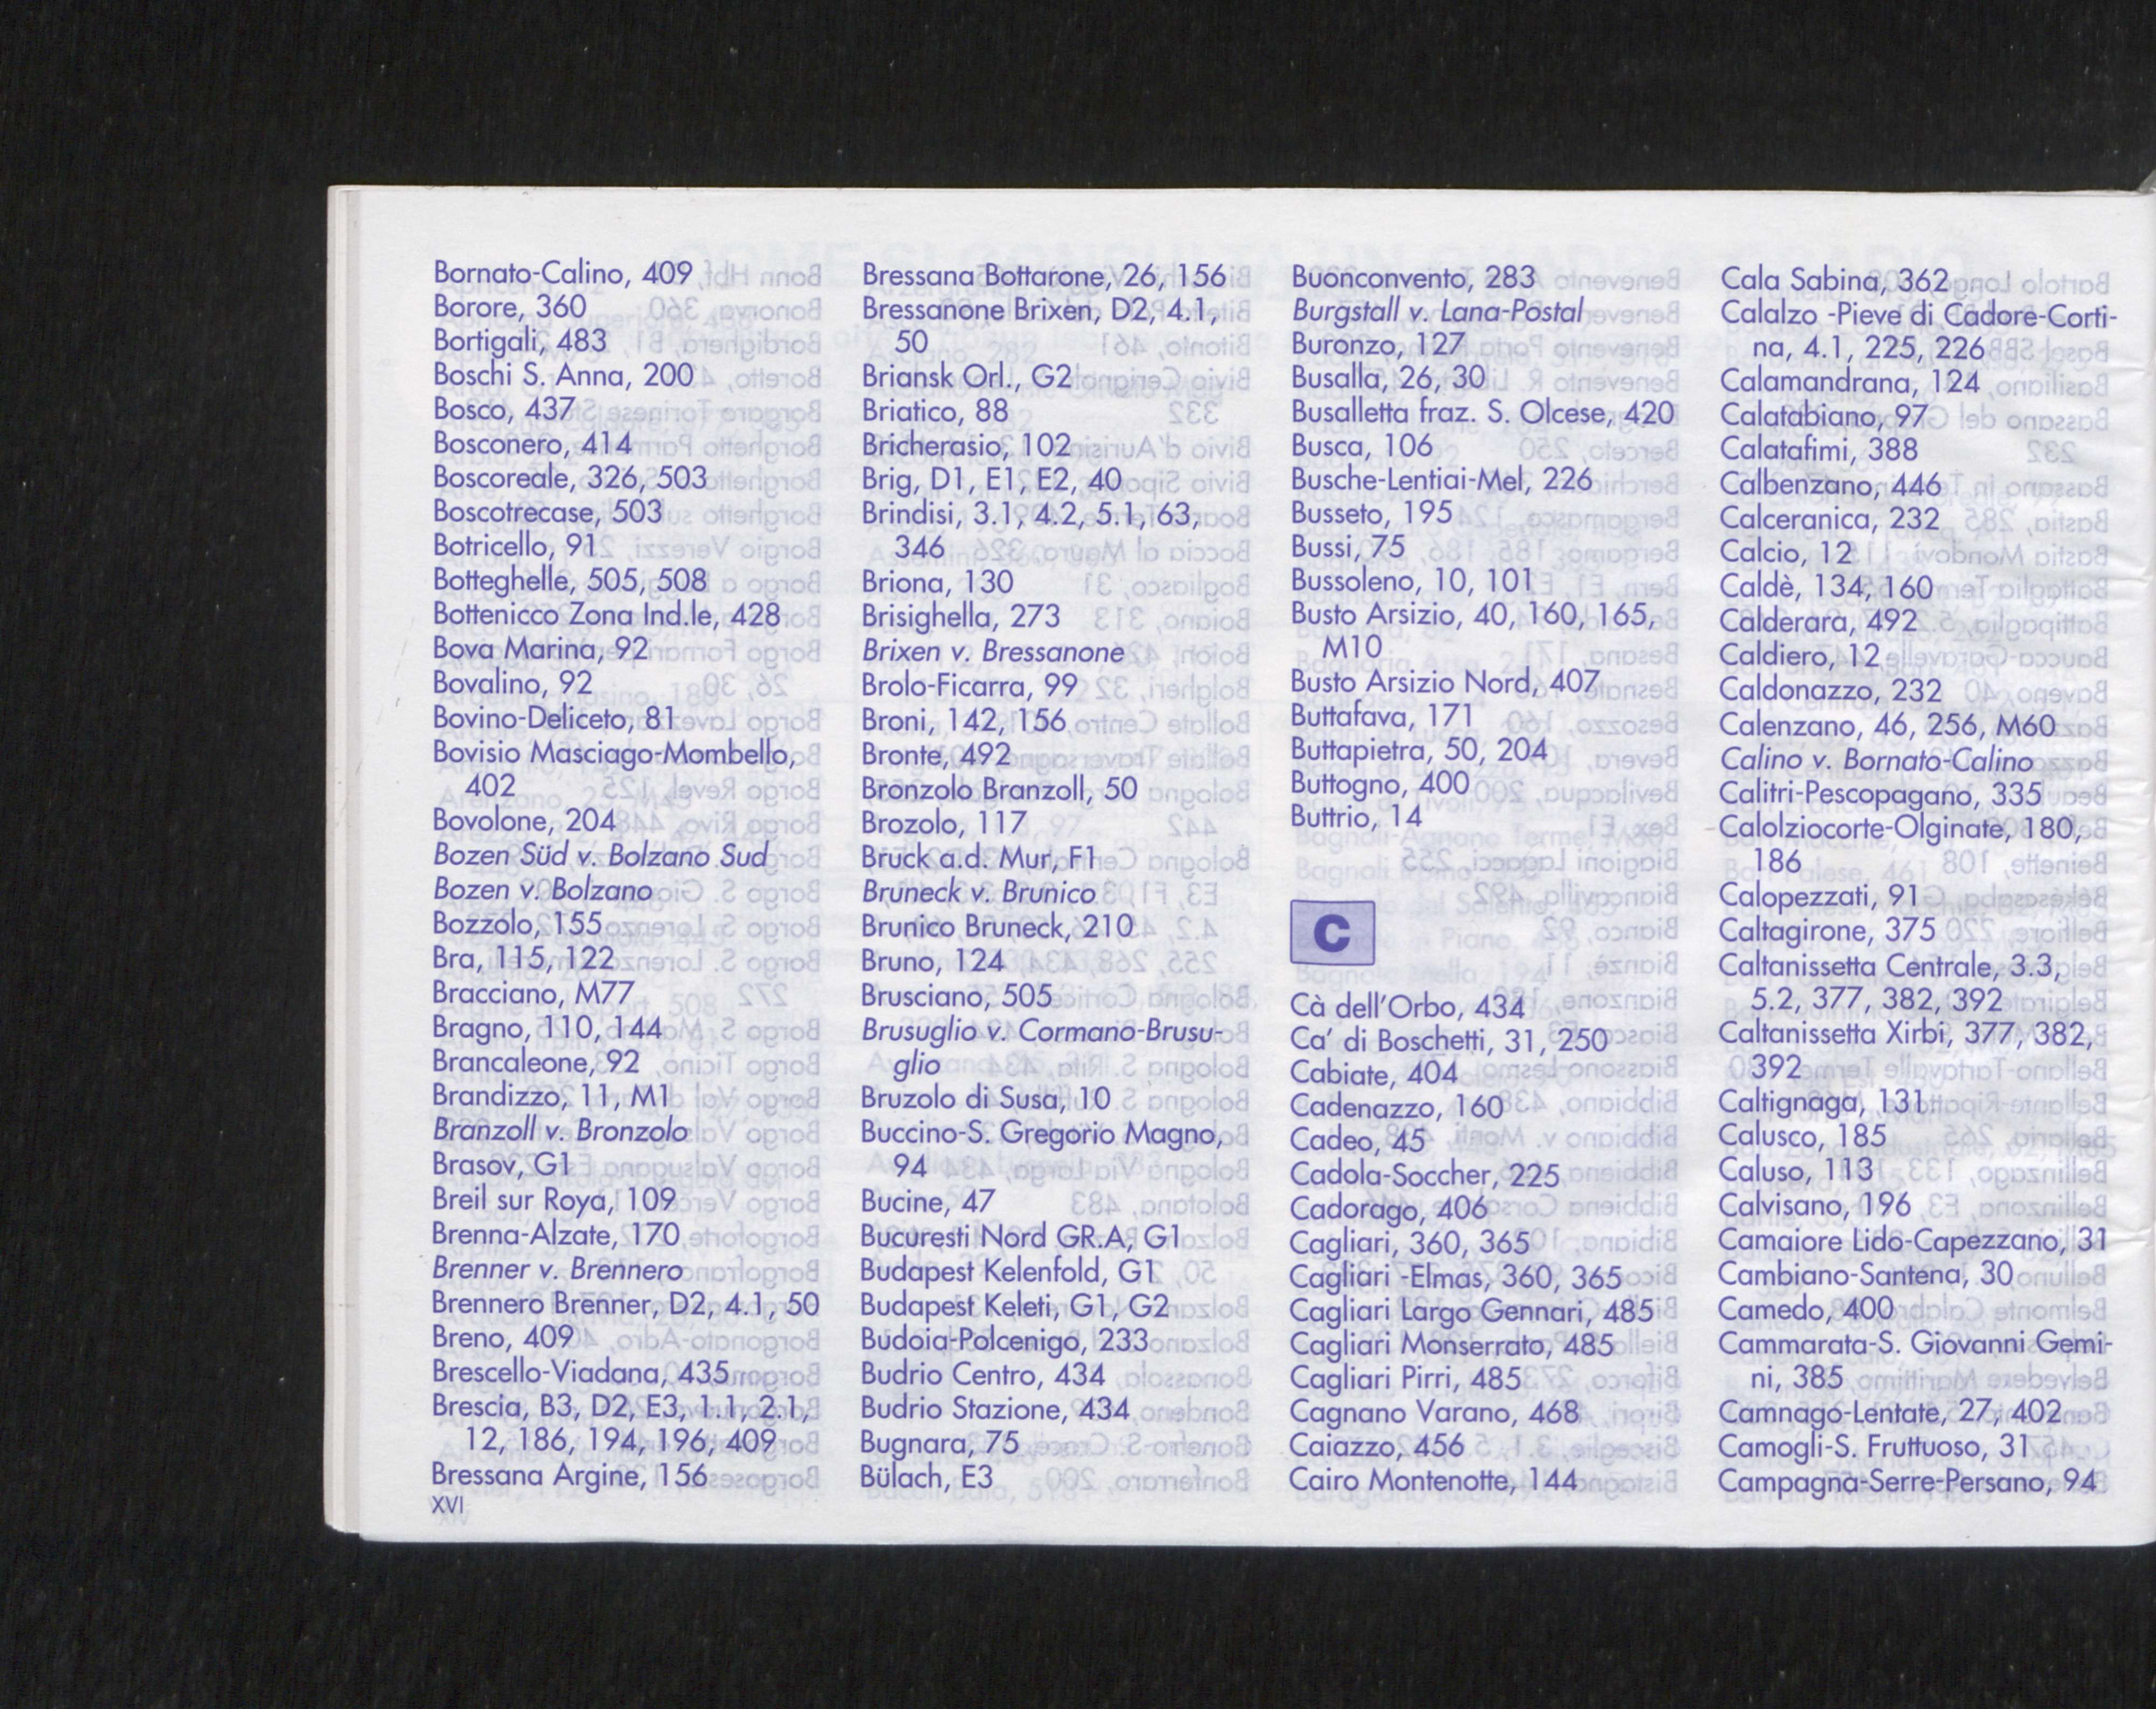 Bornato-Calino, 409
Borore, 360
Bortigali, 483
Boschi S. Anna, 200
Bosco, 437
Bosconero, 414
Boscoreale, 326, 503
Boscotrecase, 503
Botricello, 91
Botteghelle, 505, 508
Bottenicco Zona Ind.le, 428
Bova Marina, 92
Bovalino, 92
Bovino-Deliceto, 81
Bovisio Masciago-Mombello,
402
Bovolone, 204
Bozen Süd v. Bolzano Sud
Bozen v. Bolzano
Bozzolo, 155
Bra, 115, 122
Bracciano, M77
Bragno, 110, 144
Brancaleone, 92
Brandizzo, 11, M1
Branzoll v. Bronzolo
Brasov, G1
Breil sur Roya, 109
Brenna-Alzate, 170
Brenner v. Brennero
Brennero Brenner, D2, 4.1, 50
Breno, 409
Brescello-Viadana, 435
Brescia, B3, D2, E3, 1.1, 2.1,
12, 186, 194, 196, 409
Bressana Argine, 156
XVI
Bressana Bottarone, 26, 156
Bressanone Brixen, D2, 4.1,
50
Briansk Orl., G2
Briatico, 88
Bricherasio, 102
Brig, D1, E1, E2, 40
Brindisi, 3.1, 4.2, 5.1, 63,
346
Briona, 130
Brisighella, 273
Brixen v. Bressanone
Brolo-Ficarra, 99
Broni, 142, 156
Bronte, 492
Bronzolo Branzoll, 50
Brozolo, 117
Bruck a.d. Mur, F1
Bruneck v. Brunico
Brunico Bruneck, 210
Bruno, 124
Brusciano, 505
Brusuglio v. Cormano-Brusu-
glio
Bruzolo di Susa, 10
Buccino-S. Gregorio Magno,
94
Bucine, 47
Bucuresti Nord GR.A, G1
Budapest Kelenfold, G1
Budapest Keleti, G1, G2
Budoia-Polcenigo, 233
Budrio Centro, 434
Budrio Stazione, 434
Bugnara, 75
Bülach, E3
Buonconvento, 283
Burgstall v. Lana-Postal
Buronzo, 127
Busalla, 26, 30
Busalletta fraz. S. Olcese, 420
Busca, 106
Busche-Lentiai-Mel, 226
Busseto, 195
Bussi, 75
Bussoleno, 10, 101
Busto Arsizio, 40, 160, 165,
M10
Busto Arsizio Nord, 407
Buttafava, 171
Buttapietra, 50, 204
Buttogno, 400
Buttrio, 14
C
Cà dell'Orbo, 434
Ca' di Boschetti, 31, 250
Cabiate, 404
Cadenazzo, 160
Cadeo, 45
Cadola-Soccher, 225
Cadorago, 406
Cagliari, 360, 365
Cagliari -Elmas, 360, 365
Cagliari Largo Gennari, 485
Cagliari Monserrato, 485
Cagliari Pirri, 485
Cagnano Varano, 468
Caiazzo, 456
Cairo Montenotte, 144
Cala Sabina, 362
Calalzo -Pieve di Cadore-Corti-
na, 4.1, 225, 226
Calamandrana, 124
Calatabiano, 97
Calatafimi, 388
Calbenzano, 446
Calceranica, 232
Calcio, 12
Caldè, 134, 160
Calderara, 492
Caldiero, 12
Caldonazzo, 232
Calenzano, 46, 256, M60
Calino v. Bornato-Calino
Calitri-Pescopagano, 335
Calolziocorte-Olginate, 180,
186
Calopezzati, 91
Caltagirone, 375
Caltanissetta Centrale, 3.3,
5.2, 377, 382, 392
Caltanissetta Xirbi, 377, 382,
392
Caltignaga, 131
Calusco, 185
Caluso, 113
Calvisano, 196
Camaiore Lido-Capezzano, 31
Cambiano-Santena, 30
Camedo, 400
Cammarata-S. Giovanni Gemi-
ni, 385
Camnago-Lentate, 27, 402
Camogli-S. Fruttuoso, 31
Campagna-Serre-Persano, 94